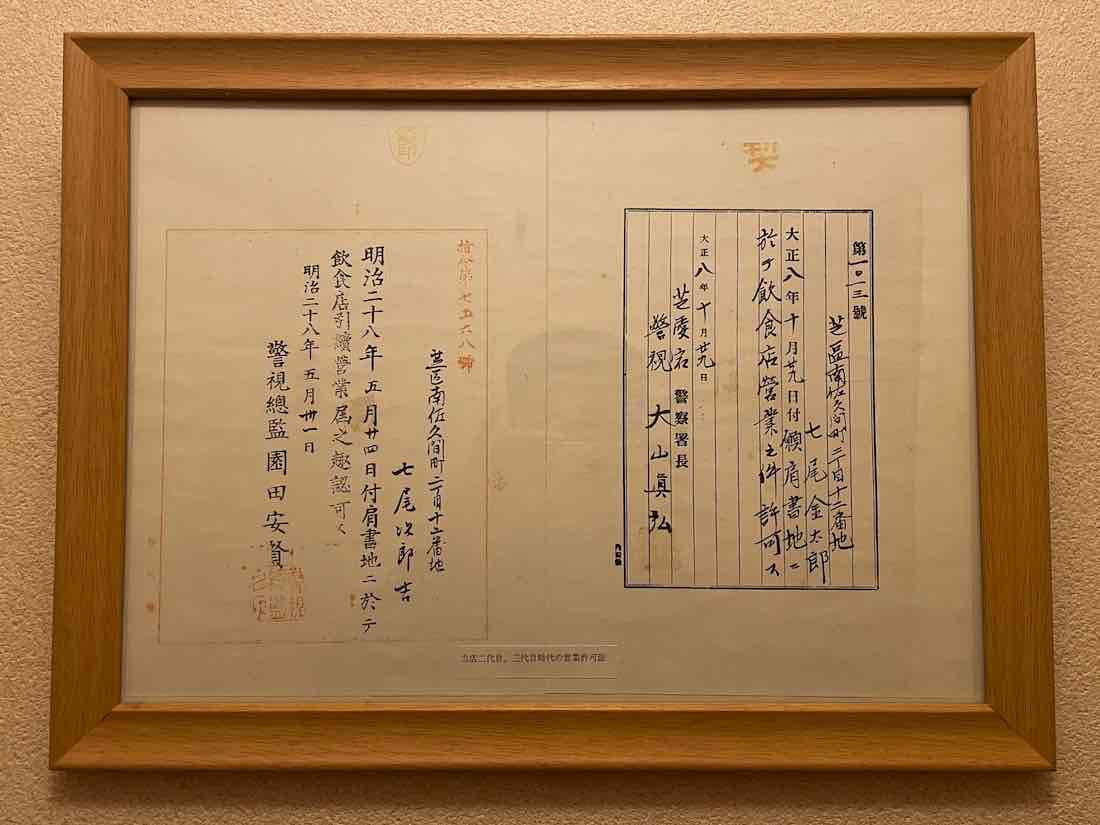 第一〇三號
芝區南佐久間町二丁目十二番地
七尾金太郎
大正八年十月廿九日付願肩書地ニ
於テ飲食店營業之件許可ス
大正八年十月廿九日
芝愛宕警察署長
警視大山眞弘
拾令第七五六八號
芝区南佐久間町二丁目十二番地
七尾次郎吉
明治二十八年五月廿四日付肩書地ニ於テ
飲食店引續營業届之趣認可ス
明治二十八年五月卅一日
警視總監園田安賢
当店二代目、三代目時代の営業許可証